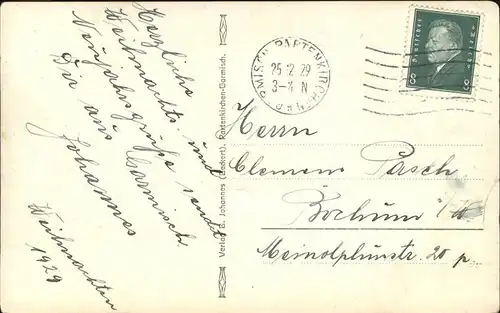 Herzliche
Weihnachts- und
Neujahrsgrüße sendet
Dir aus Garmisch
Johannes
Weihnachten
1929
Verlag B. Johannes (Eckert), Partenkirchen-Garmisch.
GARMISCH-PARTENKIRCHEN
25 12 29
3-4 N
Deutsches Reich
8 8
Herrn
Clemens Pasch
Bochum i/W
Meinolphusstr. 20 p.